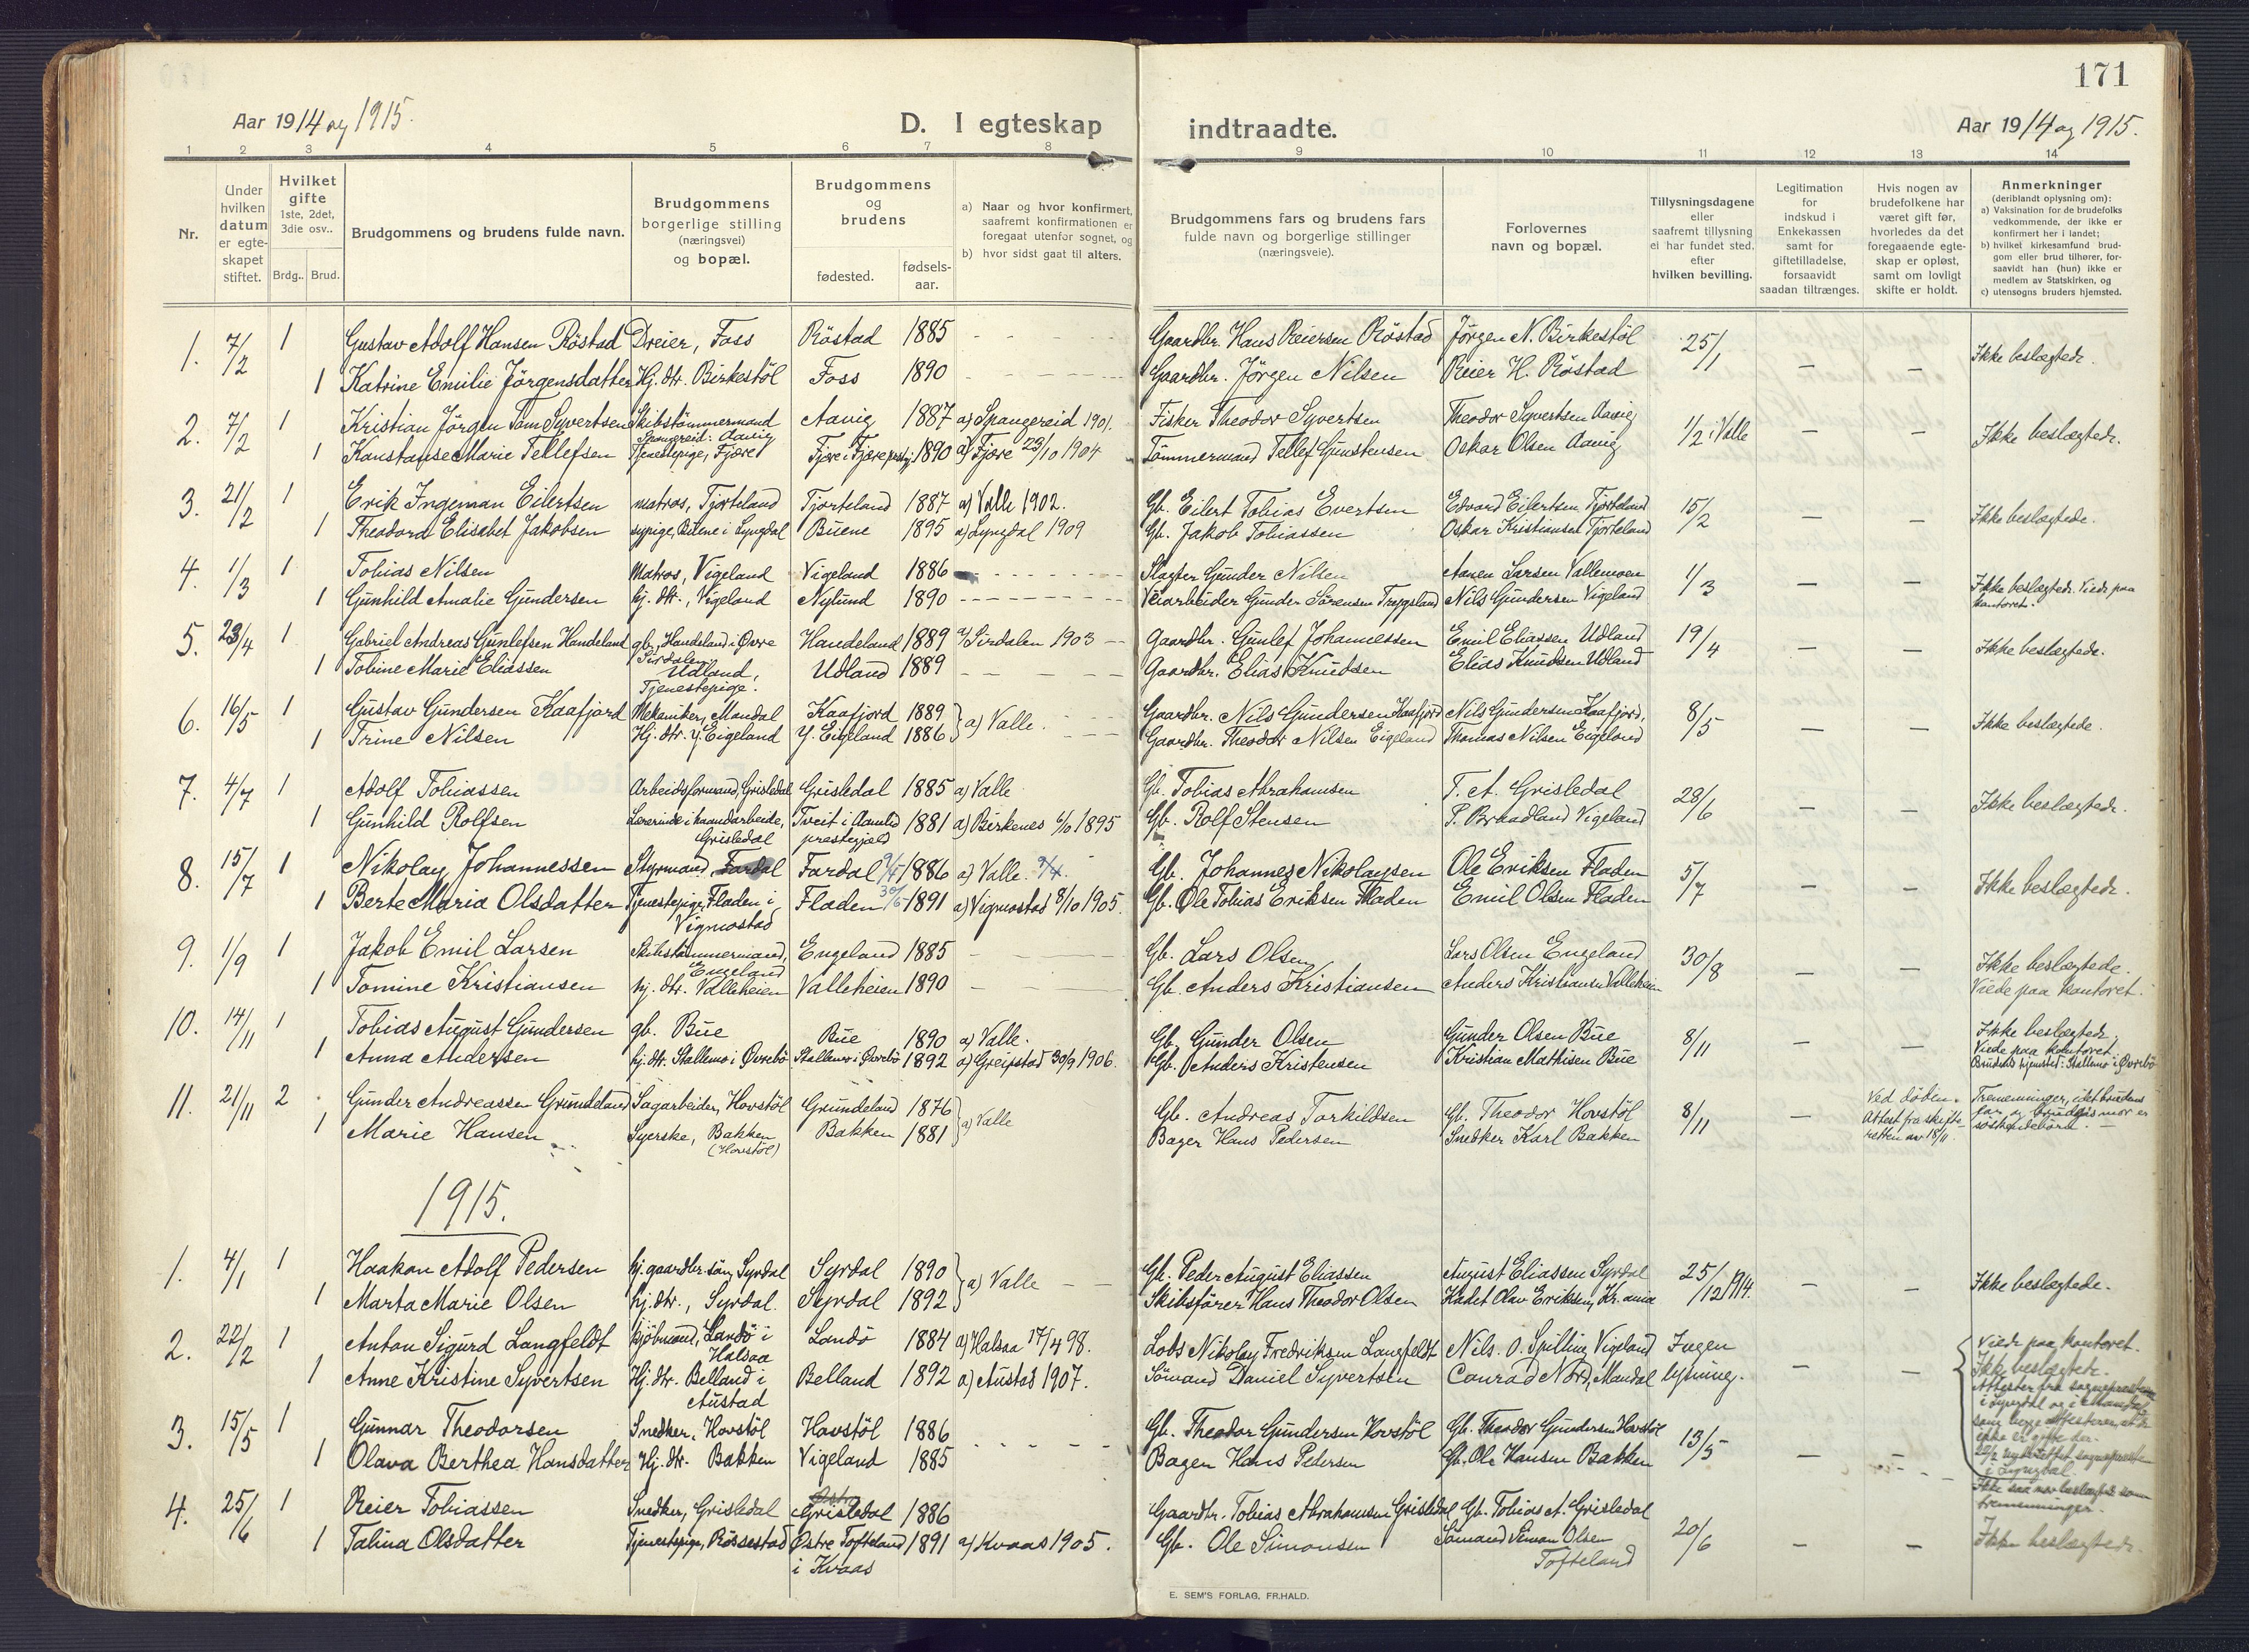 171
Aar 1914 og 1915.
D. I egteskap indtraadte.
Aar 1914 og 1915.
1 2 3 4 5 6 7 8 9 10 11 12 13 14
Nr.
Under hvilken datum er egteskapet stiftet.
Hvilket gifte 1ste, 2det, 3die osv..
Brdg.. Brud.
Brudgommens og brudens fulde navn.
Brudgommens borgerlige stilling (næringsvei) og bopæl.
Brudgommens og brudens
fødested. fødselsaar.
a) Naar og hvor konfirmert, saafremt konfirmationen er foregaat utenfor sognet, og
b) hvor sidst gaat til alters.
Brudgommens fars og brudens fars fulde navn og borgerlige stillinger (næringsveie).
Forlovernes navn og bopæl.
Tillysningsdagene eller saafremt tillysning ei har fundet sted, efter hvilken bevilling.
Legitimation for indskud i Enkekassen samt for giftetilladelse, forsaavidt saadan tiltrænges.
Hvis nogen av brudefolkene har været gift før, hvorledes da det foregaaende egteskap er opløst, samt om lovligt skifte er holdt.
Anmerkninger (deriblandt oplysning om):
a) Vaksination for de brudefolks vedkommende, der ikke er konfirmert her i landet;
b) hvilket kirkesamfund brudgom eller brud tilhører, forsaavidt han (hun) ikke er medlem av Statskirken, og
c) utensogns bruders hjemsted.
1. 7/2 1 Gustav Adolf Hansen Röstad Dreier, Foss Röstad 1885 - - Gaardbr. Hans Reiersen Röstad Jörgen N. Birkestöl 25/1 — — Ikke beslægtede.
1 Katrine Emilie Jörgensdatter Hj. dtr. Birkestöl Foss 1890 - - Gaardbr. Jörgen Nilsen Reier H. Röstad
2. 7/2 1 Kristian Jörgen Tom Syvertsen Skibstömmermand Spangereid: Aavig Aavig 1887 a) Spangereid 1901. Fisker Theodor Syvertsen Theodor Syvertsen Aavig 1/2 i Valle — — Ikke beslægtede.
1 Konstanse Marie Tellefsen Tjenestepige, Fjære Fjære i Fjære prstgj. 1890 a) Fjære 23/10 1904 Tömmermand Tellef Gunstensen Oskar Olsen Aavig
3. 21/2 1 Erik Ingeman Eilertsen matros, Tjorteland Tjorteland 1887 a) Valle 1902. Gb. Eilert Tobias Evertsen Edvard Eilertsen Tjorteland 15/2 — — Ikke beslægtede.
1 Theodora Elisabet Jakobsen sypige, Buene i Lyngdal Buene 1895 a) Lyngdal 1909 Gb. Jakob Tobiassen Oskar Kristiansen Tjorteland
4. 1/3 1 Tobias Nilsen Matros, Vigeland Vigeland 1886 - - Slagter Gunder Nilsen Aanen Larsen Vallemoen 1/3 — — Ikke beslægtede. Viede paa kontoret.
1 Gunhild Amalie Gundersen hj. dtr., Vigeland Nylund 1890 - - Veiarbeider Gunder Sörensen Tryggsland Nils Gundersen Vigeland
5. 23/4 1 Gabriel Andreas Gunlefsen Handeland gb., Handeland i Øvre Sirdalen Handeland 1889 a) Sirdalen 1903 — Gaardbr. Gunlef Johannessen Emil Eliassen Udland 19/4 — — Ikke beslægtede.
1 Tobine Marie Eliassen Udland, Tjenestepige. Udland 1889 — — Gaardbr. Elias Knudsen Elias Knudsen Udland
6. 16/5 1 Gustav Gundersen Kaafjord Mekaniker, Mandal Kaafjord 1889 } a) Valle. Gaardbr. Nils Gundersen Kaafjord Nils Gundersen Kaafjord, 8/5 — — Ikke beslægtede.
1 Trine Nilsen Hj. dtr. Y. Eigeland Y. Eigeland 1886 Gaardbr. Theodor Nilsen Eigeland Thomas Nilsen Eigeland
7. 4/7 1 Adolf Tobiassen Arbeidsformand, Grisledal Grisledal 1885 a) Valle Gb. Tobias Abrahamsen T. A. Grisledal 28/6 — — Ikke beslægtede.
1 Gunhild Rolfsen Lærerinde i haandarbeide, Grisledal Tveit i Aamlid prestegjæld 1881 a) Birkenes 6/10 1895 Gb. Rolf Stensen P. Braadland Vigeland
8. 15/7 1 Nikolay Johannessen Styrmand, Fardal Fardal 9/5 1886 a) Valle. Gb. Johannes Nikolaysen Ole Eriksen Fladen 5/7 — — Ikke beslægtede.
1 Berte Maria Olsdatter Tjenestepige, Fladen i Vigmostad Fladen 30/6 1891 a) Vigmostad 8/10 1905. Gb. Ole Tobias Eriksen Fladen Emil Olsen Fladen
9. 1/9 1 Jakob Emil Larsen Skibstömmermand, Engeland Engeland 1885 — Gb. Lars Olsen Lars Olsen Engeland 30/8 — — Ikke beslægtede. Viede paa kontoret.
1 Tomine Kristiansen hj. dtr. Valleheien Valleheien 1890 — Gb. Anders Kristiansen Anders Kristiansen Valleheien
10. 14/11 1 Tobias August Gundersen gb. Bue Bue 1890 a) Valle. Gb. Gunder Olsen Gunder Olsen Bue 8/11 — — Ikke beslægtede. Viede paa kontoret. Brudens hjemsted: Stallemo i Øvrebö
1 Anna Andersen hj. dtr. Stallemo i Øvrebö Stallemo i Øvrebö 1892 a) Greipstad 30/9 1906. Gb. Anders Kristensen Kristian Mathisen Bue
11. 21/11 2 Gunder Andreassen Grundeland Sagarbeider, Hovstöl Grundeland 1876 } a) Valle Gb. Andreas Torkildsen Gb. Theodor Hovstöl 8/11 — Ved döden. Attest fra skifteretten av 18/11. Tremenninger, idet brudens far og brudgs mor er söskendebörn. —
1 Marie Hansen Syerske, Bakken (Hovstöl) Bakken 1881 Bager Hans Pedersen Snedker Karl Bakken
1915.
1. 4/1 1 Haakon Adolf Pedersen hj. gaardbr. sön, Syrdal Syrdal 1890 } a) Valle — — Gb. Peder August Eliassen August Eliassen Syrdal 25/12 1914. — — Ikke beslægtede.
1 Marta Marie Olsen hj. dtr., Syrdal. Syrdal 1892 Skibsförer Hans Theodor Olsen Kadet Olav Eriksen, Kr.ania
2. 22/2 1 Anton Sigurd Langfeldt kjöbmand, Landö i Halsaa Landö 1884 a) Halsaa 17/4 98. Lods Nikolay Fredriksen Langfeldt Nils. O. Spilling Vigeland Ingen lysning. — — Viede paa kontoret. Ikke beslægtede. Attester fra sogneprestene i Lyngdal og i Mandal
1 Anne Kristine Syvertsen Hj. dtr. Belland i Austad Belland 1892 a) Austad 1907. Sömand Daniel Syvertsen Conrad Nord, Mandal
3. 15/5 1 Gunnar Theodorsen Snedker, Hovstöl Hovstöl 1886 - - Gb. Theodor Gundersen Hovstöl Gb. Theodor Gundersen Hovstöl 13/5 — — Ikke saa nær beslægtede som tremenninger.
1 Olava Berthea Hansdatter Hj. dtr. Bakken Vigeland 1885 Bager Hans Pedersen Gb. Ole Hansen Bakken
4. 25/6 1 Reier Tobiassen Snedker, Grisledal Grisledal 1886 Gaardbr. Tobias Abrahamsen Grisledal Gb. Tobias A. Grisledal 20/6 — — Ikke beslægtede.
1 Talina Olsdatter Tjenestepige, Rössestad Østre Tofteland i Kvaas 1891 a) Kvaas 1905. Gb. Ole Simonsen Sömand Simon Olsen Tofteland
E. SEM'S FORLAG, FR.HALD.